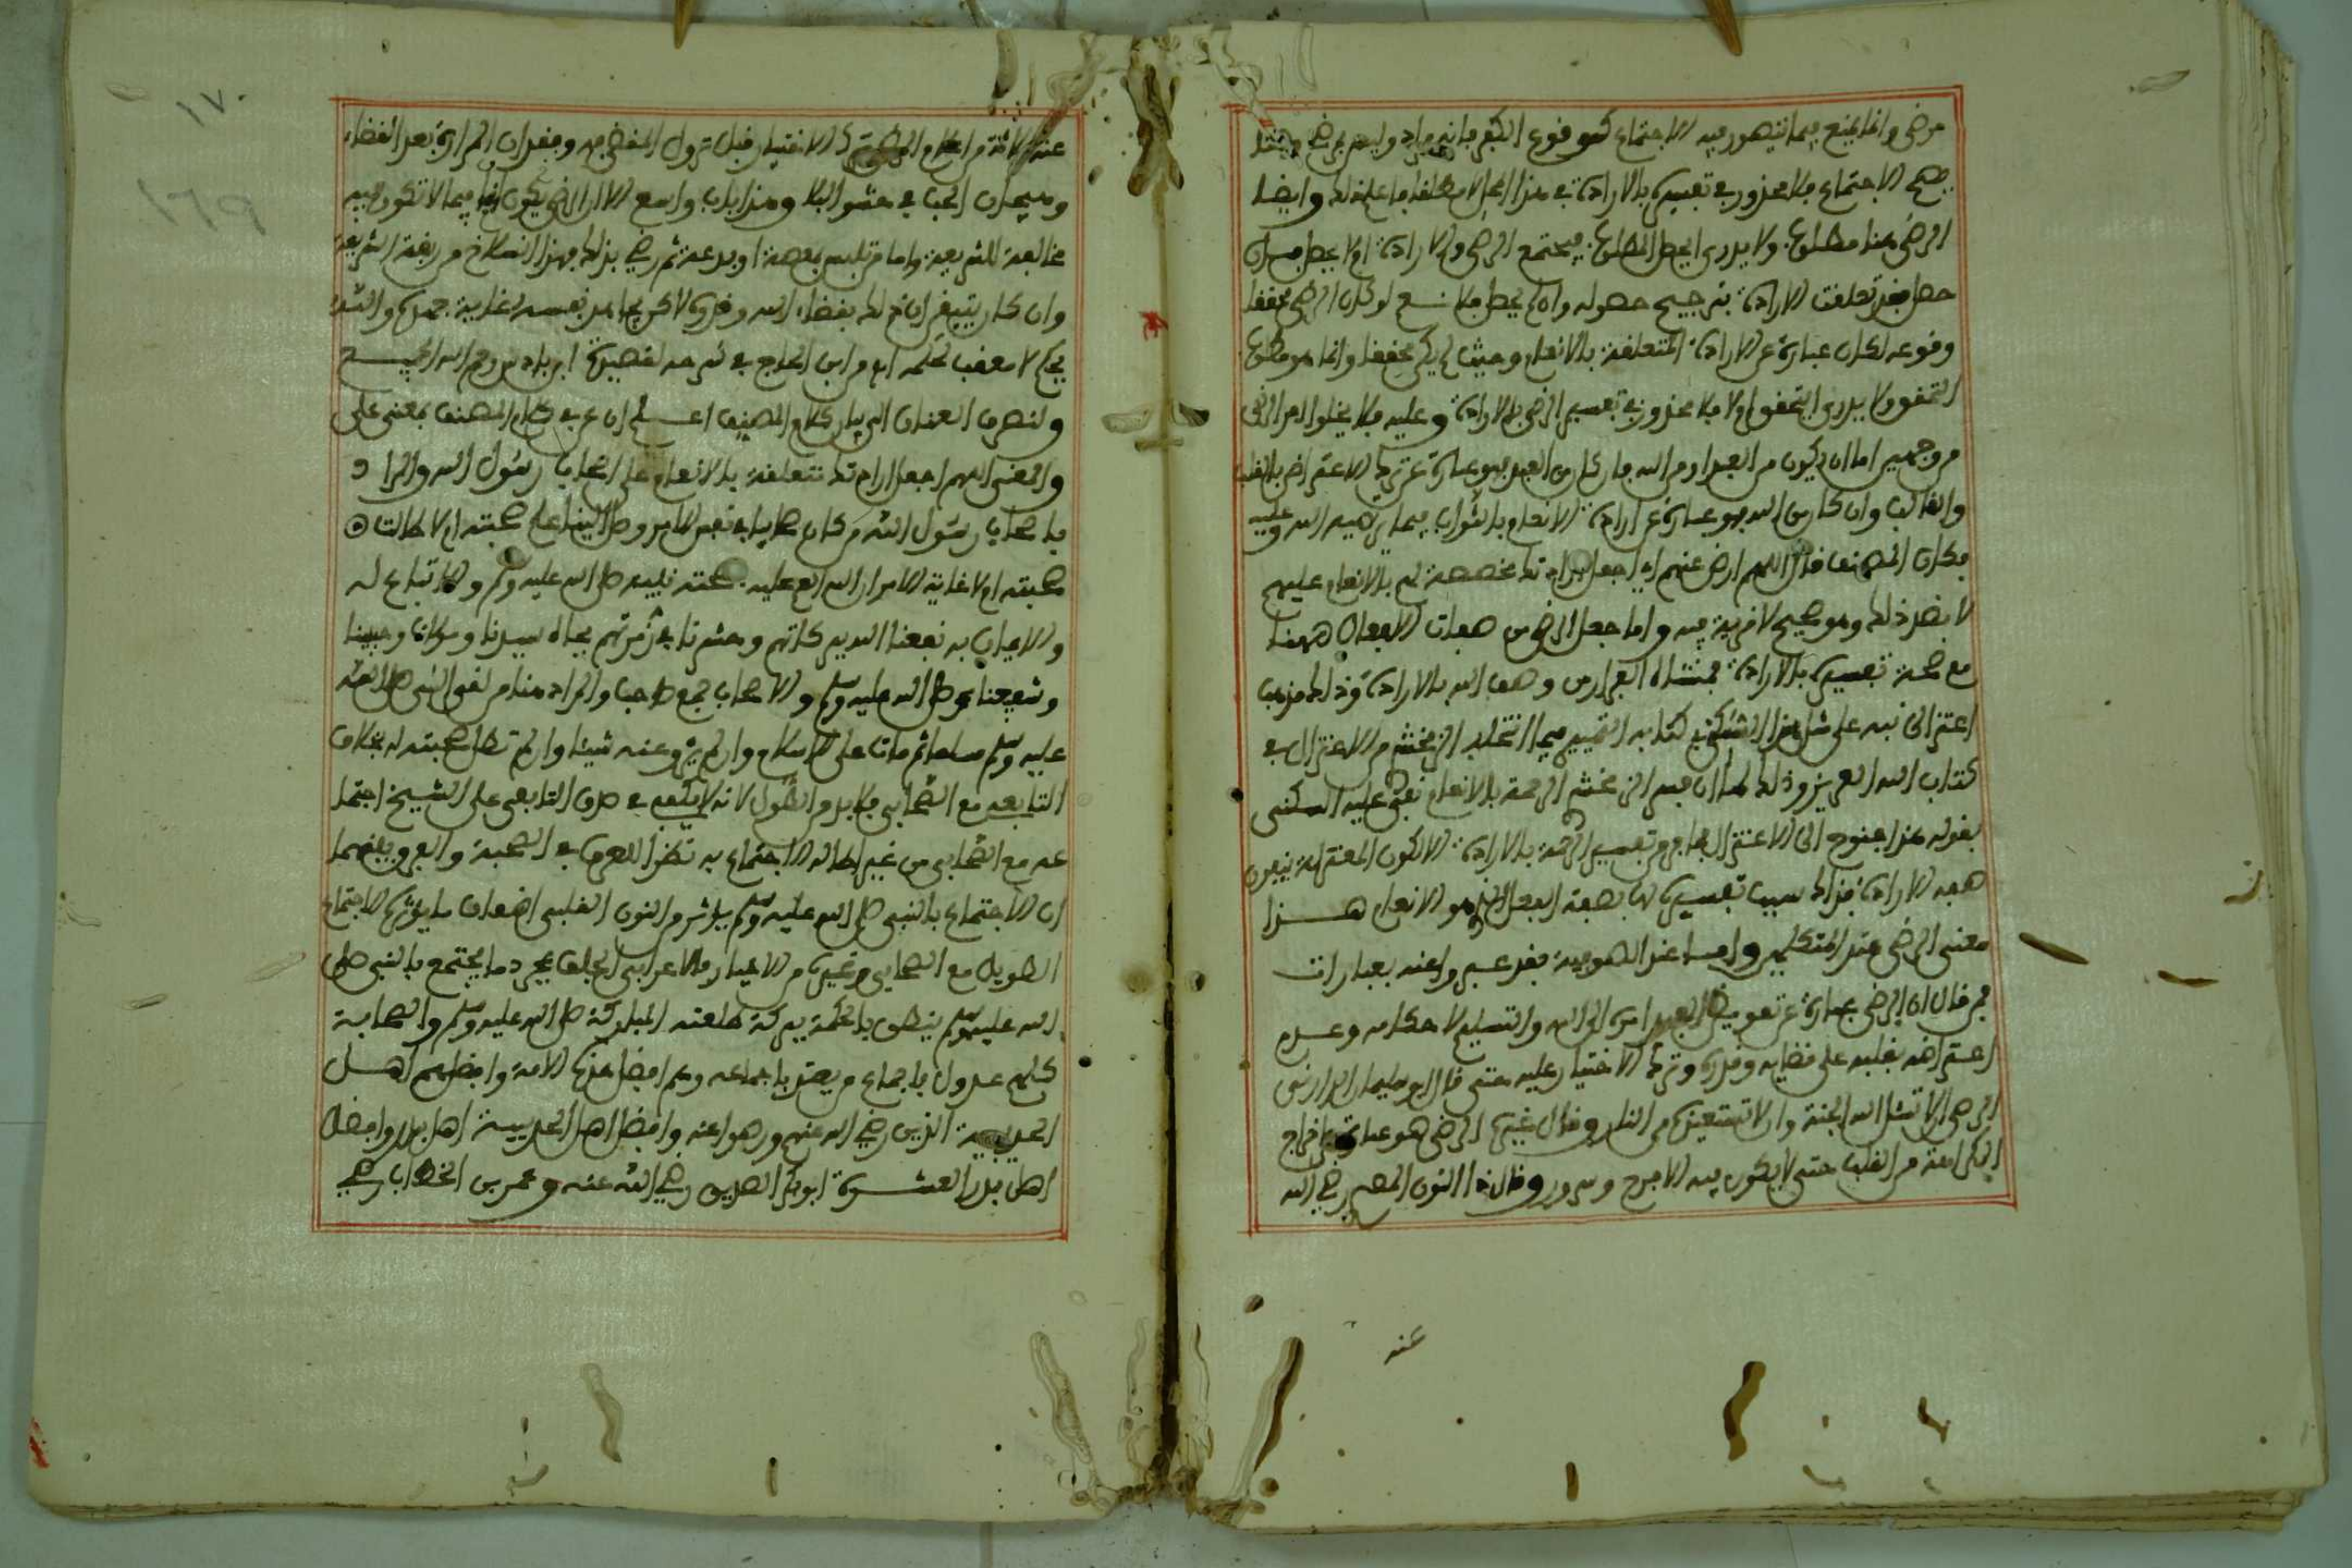 مرضي وانما يمنع فيما يتصور فيه الاجتماع كوقوع الكفر فانه مراد وليس بمرضي وحيث
يصح الاجتماع فلا محذور في تفسيره بالارادة في هذا المحل وايضا
الرضى هنا مطلوب ولا يدرى ايحصل المطلوب فيجتمع الرضى والارادة ام لا يحصل فان
حصل فقد تعلقت الارادة بترجيح حصوله وان لم يحصل فلا نسلم لو كان الرضى محققا
وقوعه لكان عبارة عن الارادة المتعلقة بالانعام وحيث لم يكن محققا وانما هو مطلوب
التحقق ولا يدرى ايتحقق ام لا فلا محذور في تفسير الرضى بالارادة وعليه فلا يخلوا امر الرضى
من وجهين اما ان يكون من العبد او من الله فان كان من العبد فهو عبارة عن ترك الاعتراض بالقلب
والقالب وان كان من الله فهو عبارة عن ارادة الانعام بالثواب فيما يرضيه الله وعليه
فكان المصنف قال اللهم ارض عنهم اي اجعل ارادتك مخصصة لهم بالانعام عليهم
لا بضد ذلك وهو صحيح لا مرية فيه واما جعل الرضى من صفات الافعال ههنا
مع صحة تفسيره بالارادة فمنشاه الفرار من وصف الله بالارادة وذلك مذهب
اعتزالي نبه على مثل هذا السكوني في كتابه التمييز فيما انتحله الزمخشري من الاعتزال في
كتاب الله العزيز وذلك لما ان فسر الزمخشري الرحمة بالانعام نقض عليه السكوني
بقوله هذا جنوح الى الاعتزال من تفسير الرحمة بالارادة لكون المعتزلة ينفون
صفة الارادة فذلك سبب تفسيره لها بصفة الفعل الذي هو الانعام هذا
معنى الرضى عند المتكلمين واما عند الصوفية فقد عبروا عنه بعبارات
فمن قال ان الرضى عبارة عن تفويض العبد امره الى الله والتسليم لاحكامه وعدم
اعتراضه بقلبه على قضائه وقدره وترك الاختيار عليه حتى قال ابو سليمان الداراني
الرضى ان لا تسئل الله الجنة وان لا تستعيذ به من النار وقال غيره الرضى هو عبارة عن اخراج
الكراهة من القلب حتى لا يكون فيه الا فرح وسرور وقال ذا النون المصري رضي الله
عنه
١٧٠
١٦٩
عنه ثلاثة من اعلام الرضى ترك الاختيار قبل نزول المقضي به وفقدان المرارة بعد القضاء
وهيجان الحب في حشو البلا وهذا باب واسع الا ان الرضى يكون ايضا فيما لا تكون فيه
مخالفة للشريعة واما من تلبس بمعصية او بدعة ثم رضي بذلك فهذا انسلاخ من ربقة الشريعة
وان كان يتيقن ان ذلك بقضاء الله وقدره لاكن يجاهد نفسه غاية جهده والله
يحكم لا معقب لحكمه انظر ابن الحاج في شرحه لقصيدة ابن باديس رحم الله الجميع
ولنصرف العنان الى بيان كلام المصنف اعلم ان عن في كلام المصنف بمعنى على
والمعنى اللهم اجعل ارادتك متعلقة بالانعام على اصحاب رسول الله والمراد
باصحاب رسول الله من كان صحابيا في نفس الامر وصل الينا علم صحبته ام لا طالت
صحبته ام لا غاية الامر ان الله انعم عليه بصحبة نبيه صلى الله عليه وسلم والاتباع له
والايمان به نفعنا الله ببركاتهم وحشرنا في زمرتهم بجاه سيدنا ومولانا وحبيبنا
وشفيعنا محمد صلى الله عليه وسلم والاصحاب جمع صاحب والمراد هنا من لقي النبي صلى الله
عليه وسلم مسلما ثم مات على الاسلام وان لم يرو عنه شيئا وان لم تطل صحبته له بخلاف
التابعي مع الصحابي فلا بد من الطول لانه لا يكفي في صدق التابعي على الشيخ اجتما
عه مع الصحابي من غير اطالة الاجتماع به نظرا للعرف في الصحبة والفرق بينهما
ان الاجتماع بالنبي صلى الله عليه وسلم يؤثر من النور القلبي اضعاف ما يؤثره الاجتماع
الطويل مع الصحابي وغيره من الاخيار فالاعرابي الجلف بمجرد ما يجتمع بالنبي صلى
الله عليه وسلم ينطق بالحكمة ببركة طلعته المباركة صلى الله عليه وسلم والصحابة
كلهم عدول باجماع من يعتد باجماعه وهم افضل هذه الامة وافضلهم اهل
الحديبية الذين رضي الله عنهم ورضوا عنه وافضل اهل الحديبية اهل بدر وافضل
اهل بدر العشرة ابوبكر الصديق رضي الله عنه وعمر بن الخطاب رضي